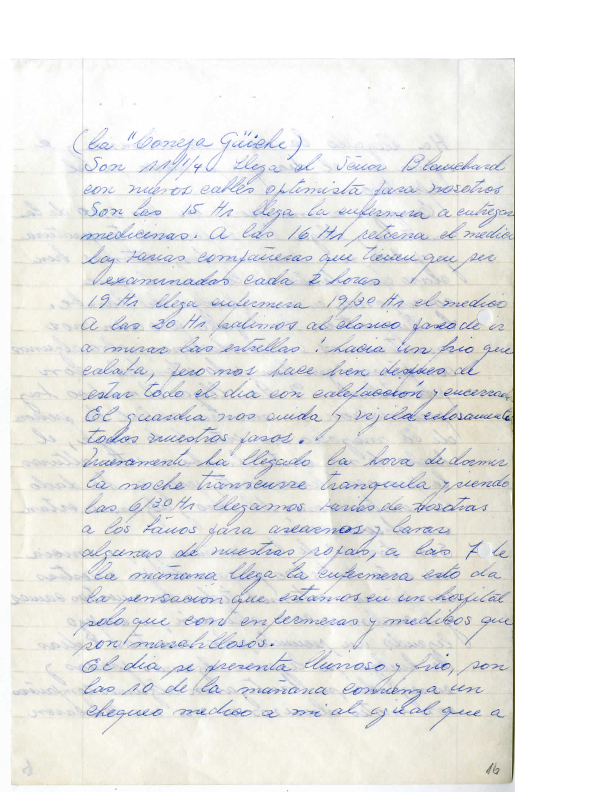 (la "Coneja Güiche)
Son 11 1/4 llega el Señor Blanchard
con nuevos cables optimista para nosotros
Son las 15 Hr llega la enfermera a entregar
medicinas. A las 16 Hr retorna el medico
hay varias compañeras que tienen que ser
examinadas cada 2 horas
19 Hr llega enfermera 19/30 Hr el medico
A las 20 Hr salimos al clasico paseo de ir
a mirar las estrellas ! hacia un frio que
calaba, pero nos hace bien despues de
estar todo el dia con calefacción y encerradas
El guardia nos cuida y vigila celosamente
todos nuestros pasos.
Nuevamente ha llegado la hora de dormir
la noche transcurre tranquila y siendo
las 6/30 Hr llegamos varias de nosotras
a los baños para asearnos y lavar
algunas de nuestras ropas, a las 7 de
la mañana llega la enfermera esto da
la sensación que estamos en un hospital
solo que con enfermeras y medicos que
son marabillosos.
El dia se presenta lluvioso y frio, son
las 10 de la mañana comienza un
chequeo medico a mi al igual que a
16